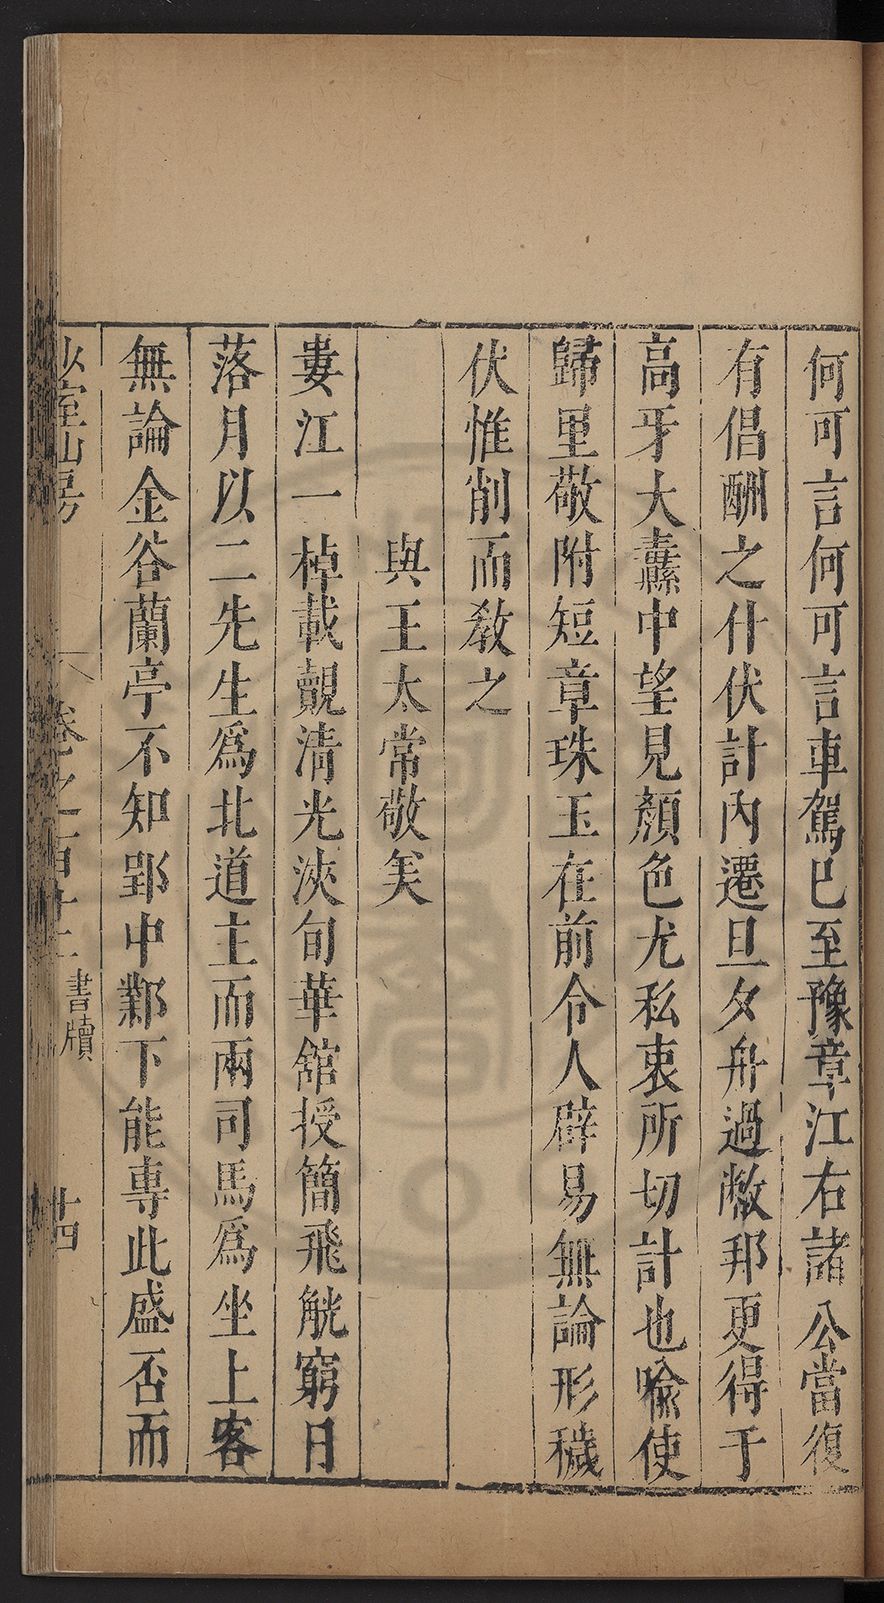 何可言何可言車駕已至豫章江右諸公當復
有倡酬之什伏計內遷旦夕舟過敝邦更得于
高牙大纛中望見顏色尤私衷所切計也喩使
歸里敬附短章珠玉在前令人辟易無論形穢
伏惟削而敎之
與王太常敬美
婁江一棹載覿清光浹旬華舘授簡飛觥窮日
落月以二先生爲北道主而兩司馬爲坐上客
無論金谷蘭亭不知郢中鄴下能專此盛否而
少室山房 卷之百十二 書牘 十四